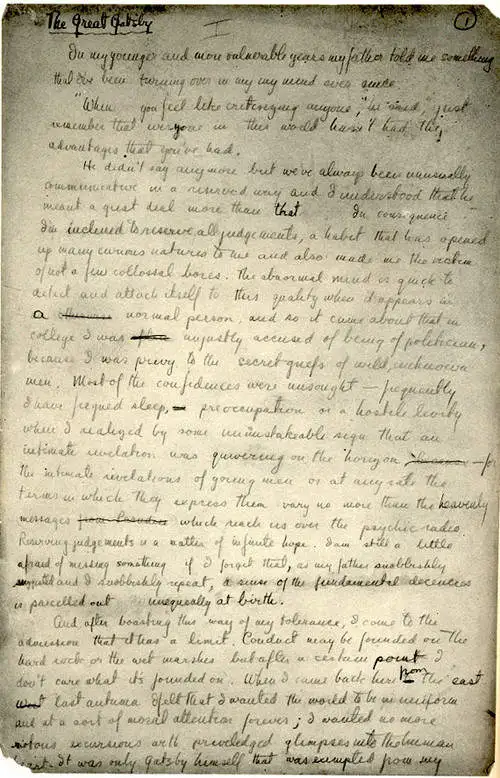 The Great Gatsby
I
1
In my younger and more vulnerable years my father told me something
that I've been turning over in my my mind ever since.
"When you feel like critisizing anyone," he said, "just
remember that everyone in this world hasn't had the
advantages that you've had.
He didn't say anymore but we've always been unusually
communicative in a reserved way and I understood that he
meant a great deal more than that In consequence
I'm inclined to reserve all judgements, a habit that has opened
up many curious natures to me and also made me the victim
of not a few collossal bores. The abnormal mind is quick to
detect and attach itself to this quality when it appears in
a normal person, and so it came about that in
college I was unjustly accused of being of politician,
because I was privy to the secret griefs of wild, unknown
men. Most of the confidences were unsought — frequently
I have feigned sleep, preoccupation or a hostile levity
when I realized by some unmistakeable sign that an
intimate revelation was quivering on the horizon — for
the intimate revelations of young men or at any rate the
terms in which they express them vary no more than the heavenly
messages from which reach us over the psychic radio.
Reserving judgements is a matter of infinite hope. I am still a little
afraid of missing something if I forget that, as my father snobbishly
and I snobbishly repeat, a sense of the fundamental decencies
is parcelled out unequally at birth.
And after boasting this way of my tolerance, I come to the
admission that it has a limit. Conduct may be founded on the
hard rock or the wet marshes but after a certain point I
don't care what it's founded on. When I came back here from the east
west last autumn I felt that I wanted the world to be in uniform
and at a sort of moral attention forever; I wanted no more
riotous excursions with priviledged glimpses into the human
heart. It was only Gatsby himself that was exempted from my